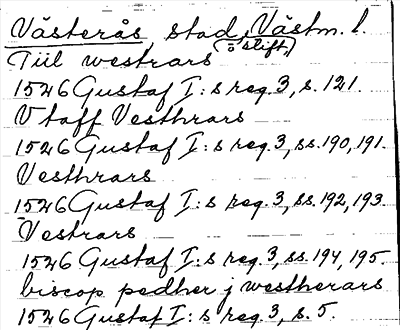 Västerås stad, Västm. l.
(o. stift.)
Tiil westrars
1526 Gustaf I:s reg. 3, s. 121.
Vtaff Vesthrars
1526 Gustaf I:s reg. 3, ss. 190, 191.
Vesthrars
1526 Gustaf I:s reg. 3, ss. 192, 193.
Vestrars
1526 Gustaf I:s reg. 3, ss. 194, 195.
biscop pedher j westherars
1526 Gustaf I:s reg. 3, s. 5.